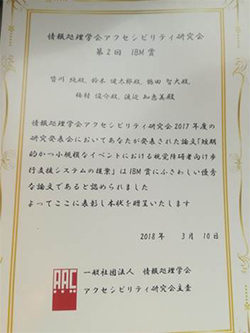 情報処理学会アクセシビリティ研究会
第2回 IBM賞
皆川 純殿, 鈴木 優志郎殿, 鶴田 智大殿,
渡辺 知恵美殿
情報処理学会アクセシビリティ研究会2017年度の
研究発表会においてあなたが発表された論文『短期
的かつ小規模なイベントにおける視覚障碍者向け歩
行支援システムの提案』はIBM賞にふさわしい優秀
な論文であると認められました
よってここに表彰し本状を贈呈いたします
2018年 3月10日
AAC
一般社団法人 情報処理学会
アクセシビリティ研究会主査